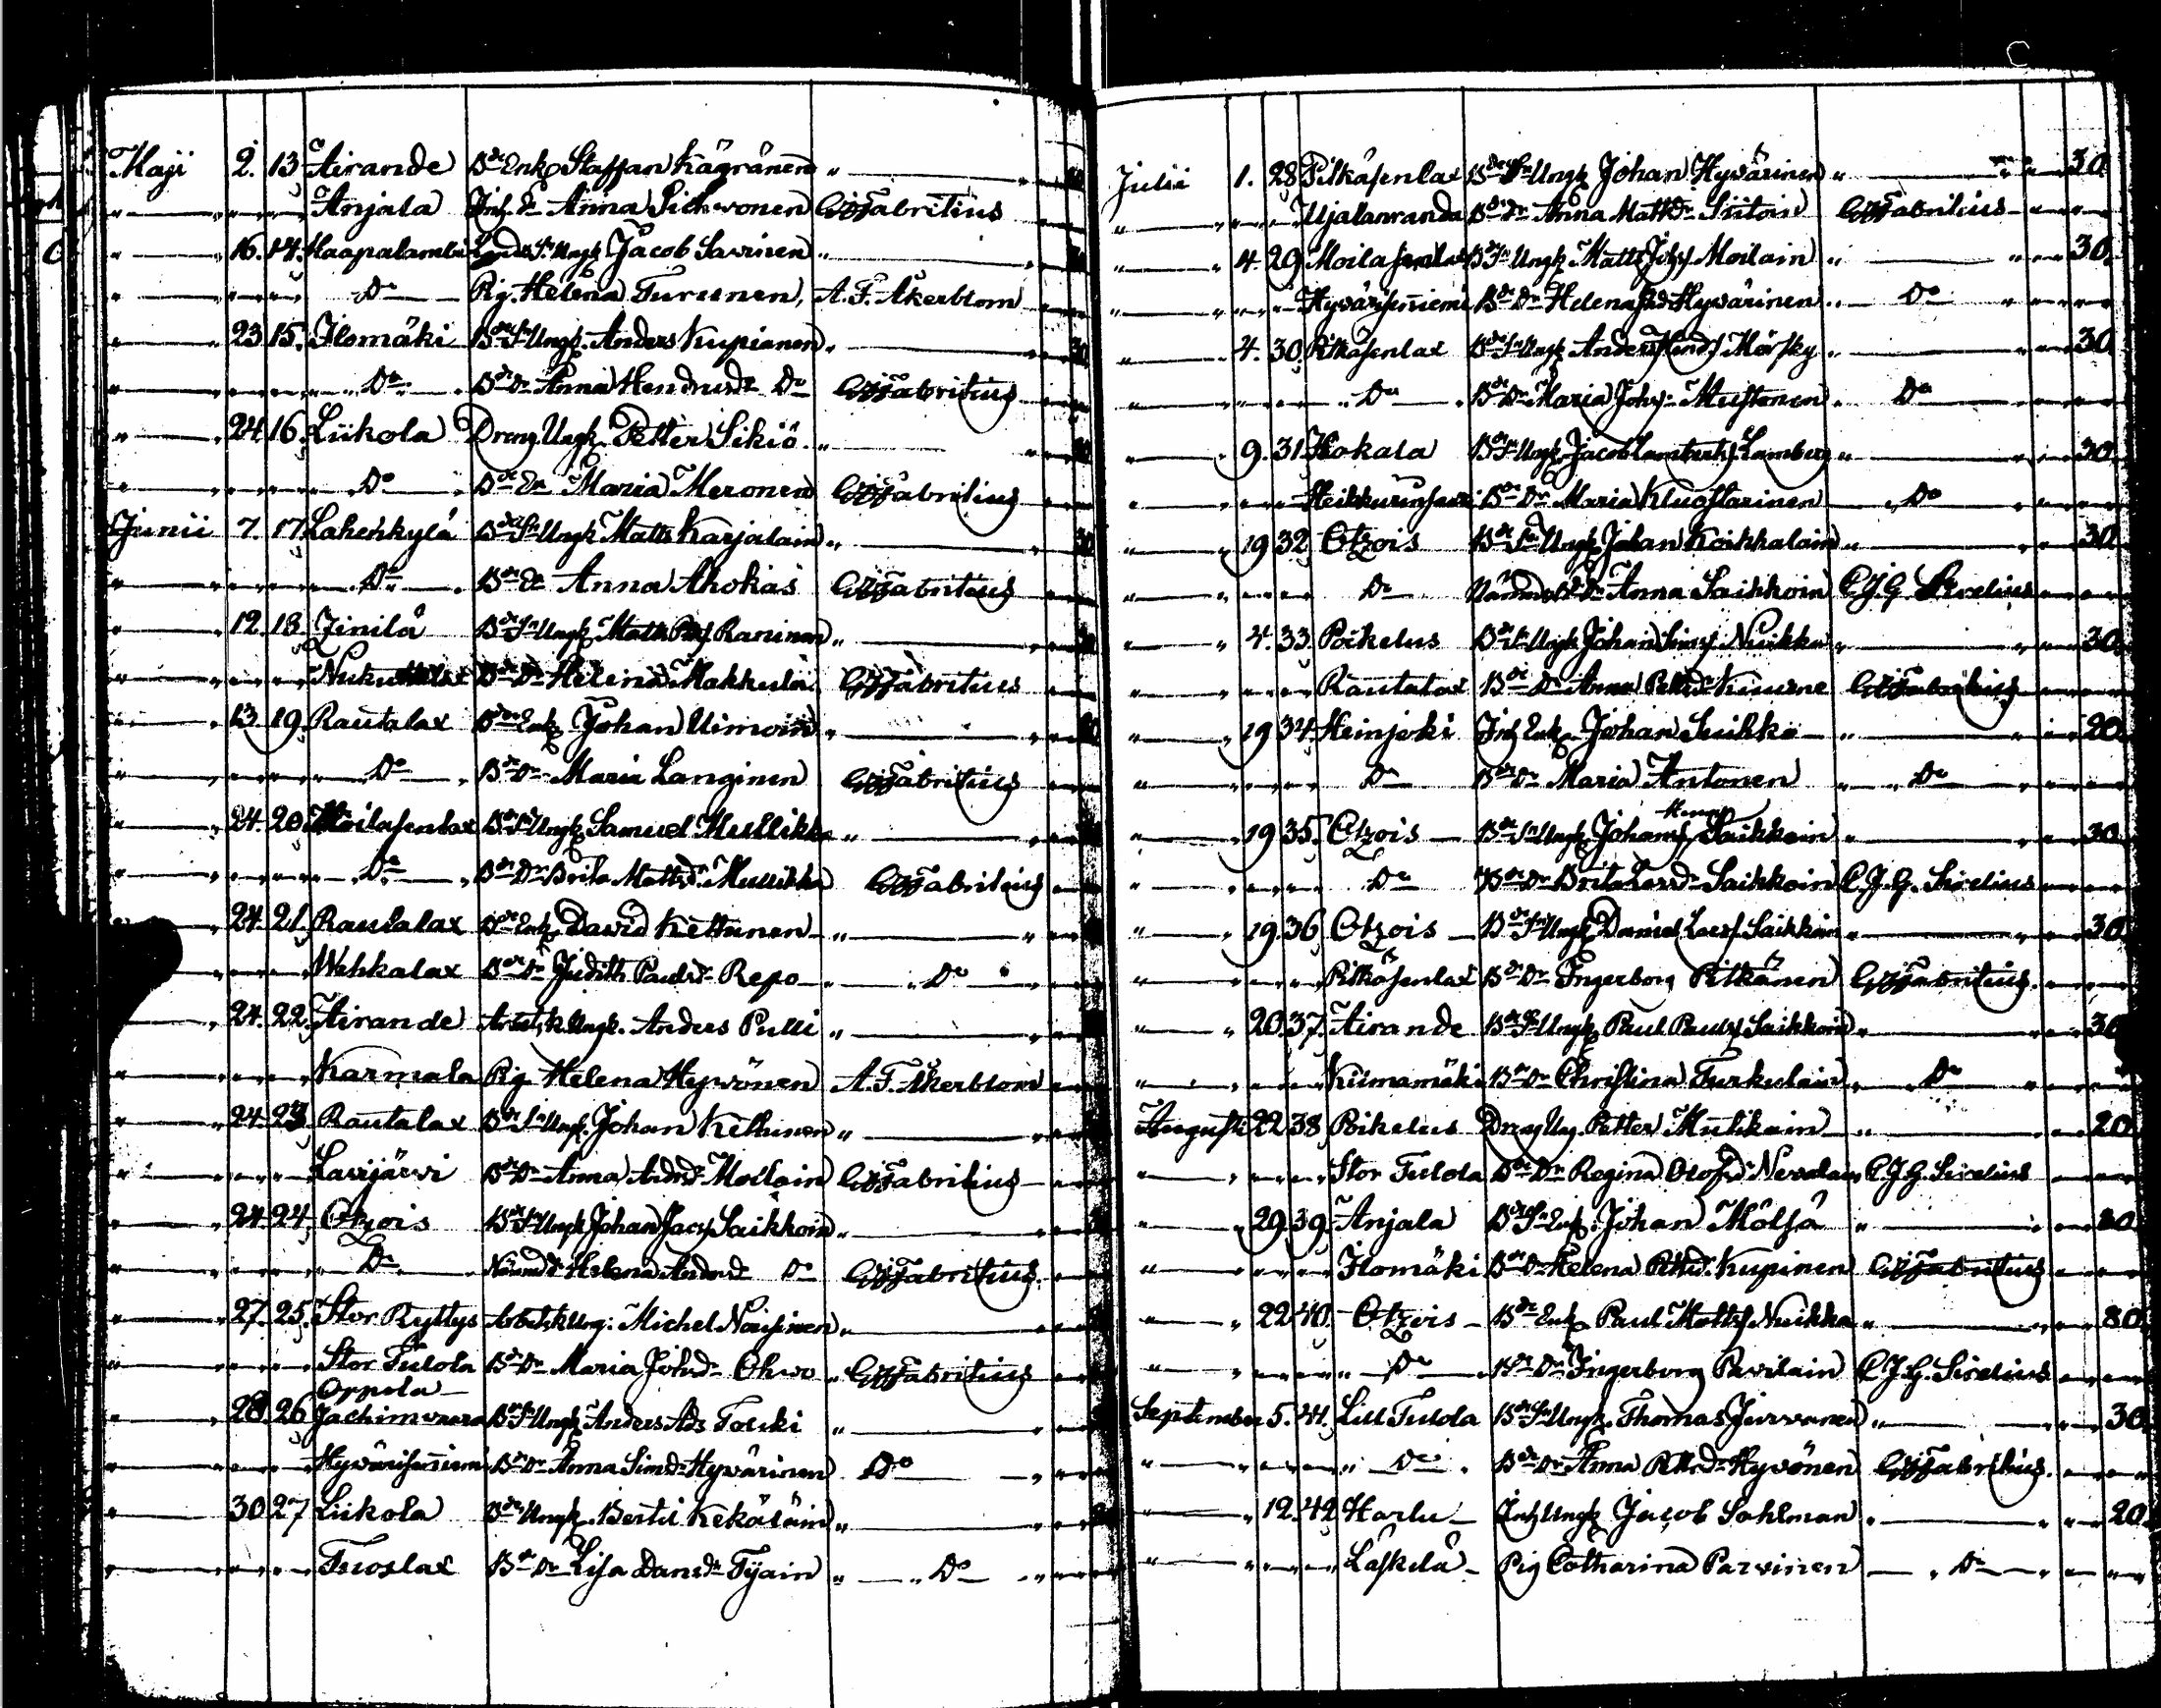 Maji 2. 13 Airande Bde Enkl Staffan Kägränen "
" Anjala Inh. Dr Anna Sichvonen GJFabritius
" 16. 14. Haapalambi Landb. Sn Ungk Jacob Savinen "
" Do Pig. Helena Turunen, A. F. Åkerblom
" 23 15. Ilomäki Bde Sn Ungk. Anders Kupianen " 30
" Do Bde Dr Anna Hendricsdr Do GJFabritius
" 24 16. Liikola Dreng Ungk. Petter Sikiö "
" Do Bde Dr Maria Meronen GJFabritius
Junii 7. 17 Lahenkylä Bde Sn Ungk Matts Karjalain " 30
" Do Bde Dr Anna Ahokas GJFabritius
" 12. 18. Jinilä Bde Sn Ungk Matts Raninen "
" Bde Dr Helena Makkula GJFabritius
" 13. 19. Rautalax Bde Enkl Johan Uimoin "
" Do Bde Dr Maria Langinen GJFabritius
" 24. 20. Moilasenlax Bde Sn Ungk Samuel Mullikka "
" Do Bde Dr Brita Mattsdr Mullikka GJFabritius
24. 21. Rautalax Bde Enkl David Kettunen "
Wehkalax Bde Dr Judith Paulsdr Repo " Do "
" 24. 22. Airande Arbetsk. Ungk. Anders Pulli "
" Karmala Pig. Helena Hyvönen A. F. Åkerblom
" 24. 23 Rautalax Bde Sn Ungk. Johan Kettunen "
" Lavijärvi Bde Dr Anna Andrsdr Moilain GJFabritius
" 24. 24. Otzois Bde Sn Ungk Johan Jacs Saikkoin "
" Do Helena Andersdr Do GJFabritius
" 27. 25. Stor Ryttys Arbetsk Ung: Michel Nousiinen "
" Stor Tulola Bde Dr Maria Johsdr Ohvo " GJFabritius
Oppola
" 28. 26 Jachimvaara Bde Sn Ungk. Anders Ads Touki "
" Hyvärisenniemi Bde Dr Anna Simsdr Hyvärinen Do
" 30 27 Liikola Bde Ungk. Bertil Kekäläin "
Tuoslax Bde Dr Lisa Danrdr Tyäin " Do
Julii 1. 28 Pitkäsenlax Bde Sn Ungk Johan Hyvärinen " 30
" Ujalanranda Bde Dr Anna Mattsdr Siitoin GJFabritius
" 4. 29 Moilasenlax Bde Sn Ungk Matts Johs Moilain " 30.
" Hyvärisenniemi Bde Dr Helena Hyvärinen Do
" 4. 30. Pitkäsenlax Bde Sn Ungk Anders Hendrs Mörsky " 30
" Do Bde Dr Maria Johsdr Mustonen Do
" 9. 31. Hokala Bde Sn Ungk Jacob Lamberts Lamberg " 30
" Bde Dr Maria Kluostarinen Do
" 19 32 Otzois Bde Sn Ungk Johan Koikkalain " 30
" Do Anna Saikkoin C. J. G. Sirelius
" 4. 33. Poikelus Bde Sn Ungk Johan Sims Nuikka " 30.
" Rautalax Bde Dr Anna Pettrdr Kiurne GJFabritius
" 19 34. Heinjoki Inh Enkl Johan Suikka " 20.
" Do Bde Dr Maria Antonen " Do
" 19 35. Otzois Bde Sn Ungk Johans Saikkoin " 30
" Do Bde Dr Brita Larsdr Saikkoin C. J. G. Sirelius
" 19. 36 Otzois Bde Sn Ungk Daniel Lars Saikkoin " 30
" Pitkäsenlax Bde Dr Ingerborg Pitkänen GJFabritius
" 20 37. Airande Bde Sn Ungk Paul Pauls Saikkoin " 30
" Kiimamäki Bde Dr Christina Turkulain " Do
Augusti 22 38 Poikelus Dreng Ung. Petter Mutikain " 20
" Stor Tulola Bde Dr Regina Olofsdr Nevalain C. J. G. Sirelius
" 29. 39. Anjala Bde Sn Enkl. Johan Mölsä " 30
" Ilomäki Bde Dr Helena Pettrdr Kupinen GJFabritius
" 22 40. Otzois Bde Enkl Paul Matts Nuikka " 80.
" Do Bde Dr Ingerborg Pavilain C. J. G. Sirelius
September 5. 41. Lill Tulola Bde Sn Ungk. Thomas Jurvanen " 30.
" Do Bde Dr Anna Pettrdr Hyvönen GJFabritius
" 12. 42 Harlu Inh Ungk Jacob Sohlman " 20.
" Läskelä Pig Catharina Parvinen " Do